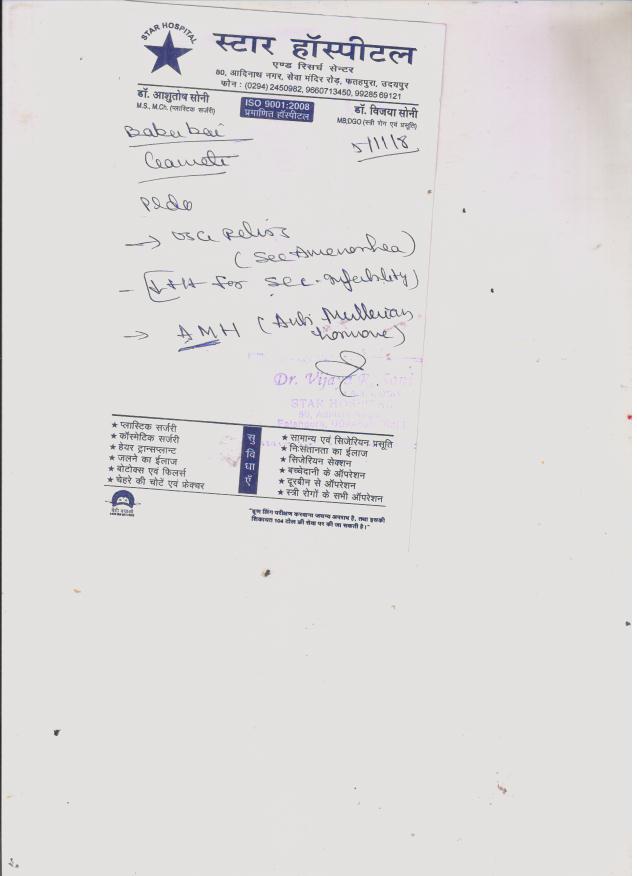 STAR HOSPITAL
स्टार हॉस्पीटल
एण्ड रिसर्च सेन्टर
80, आदिनाथ नगर, सेवा मंदिर रोड़, फतहपुरा, उदयपुर
फोन : (0294) 2450982, 9660713450, 9928569121
डॉ. आशुतोष सोनी
M.S., M.Ch. (प्लास्टिक सर्जरी)
ISO 9001:2008
प्रमाणित हॉस्पीटल
डॉ. विजया सोनी
MB,DGO (स्त्री रोग एवं प्रसूति)
5/1/18
→ USG Pelvis
(Sec Amenorrhea)
for Sec. Infertility)
→ AMH (Anti Mullerian
hormone)
STAR HOSPITAL
★ प्लास्टिक सर्जरी
★ कॉस्मेटिक सर्जरी
★ हेयर ट्रान्सप्लान्ट
★ जलने का ईलाज
★ बोटोक्स एवं फिलर्स
★ चेहरे की चोटें एवं फ्रेक्चर
सुविधाएँ
★ सामान्य एवं सिजेरियन प्रसूति
★ निःसंतानता का ईलाज
★ सिजेरियन सेक्शन
★ बच्चेदानी के ऑपरेशन
★ दूरबीन से ऑपरेशन
★ स्त्री रोगों के सभी ऑपरेशन
"भ्रूण लिंग परीक्षण करवाना जघन्य अपराध है, तथा इसकी
शिकायत 104 टोल फ्री सेवा पर की जा सकती है।"